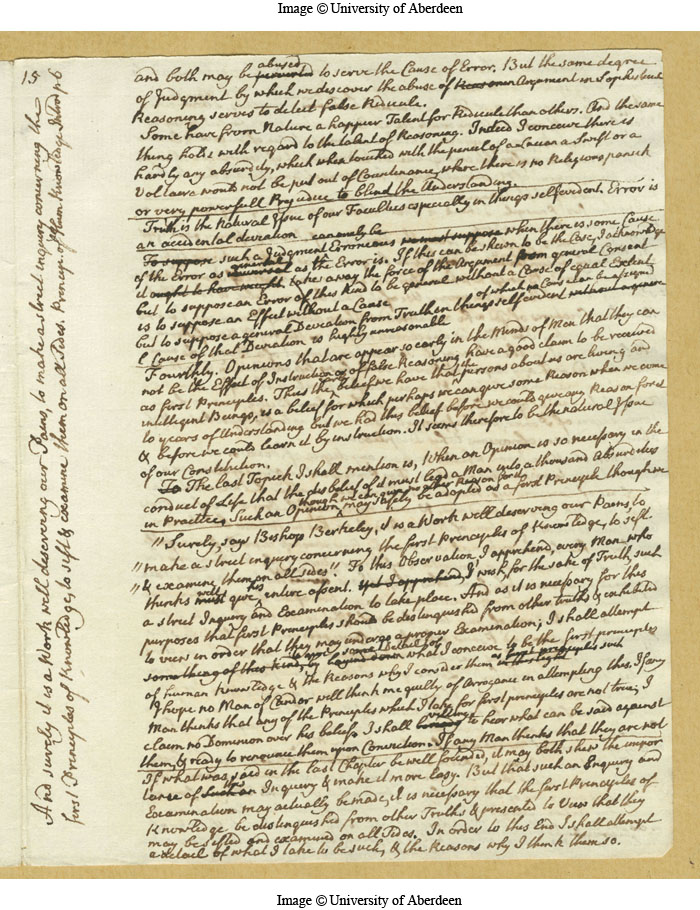 Image © University of Aberdeen
15
And surely it is a Work well deserving our Pains, to make a strict inquiry concerning the
first Principles of Knowledge, to sift & examine them on all sides. Princip. of Hum. Knowledge
and both may be perverted abused to serve the Cause of Error. But the same degree
of Judgment by which we discover the abuse of Argument in Sophistical
Reasoning serves to detect false Ridicule.
Some have from Nature a happier Talent for Ridicule than others. And the same
thing holds with regard to the talent of Reasoning. Indeed I conceive there is
hardly any absurdity, which when touched with the pencil of a Lucian a Swift or a
Voltaire would not be put out of Countenance, where there is no Religious panick
or very powerfull Prejudice to blind the Understanding.
Truth is the Natural Issue of our Faculties especially in things self evident. Error is
an accidental deviation can only be
To suppose such a Judgment Erroneous when there is some Cause
of the Error as universal general as the Error is. If this can be shewn to be the Case, I acknowledge
it ought to have weight & takes away the force of the Argument from general Consent
but to suppose an Error of this kind to be general without a Cause of equal Extent
is to suppose an Effect without a Cause of which no Cause can be assigned
but to suppose a general Deviation from Truth in things self evident without a general
Cause of that Deviation is highly unreasonable
Fourthly. Opinions that appear so early in the Minds of Men that they can
not be the Effect of Instruction or of false Reasoning have a good claim to be received
as first Principles. Thus the belief we have that the persons about us are living and
intelligent Beings, is a belief for which perhaps we can give some Reason when we come
to years of Understanding but we had this belief before we could give any Reason for it
& before we could learn it by instruction. It seems therefore to be the natural Issue
of our Constitution.
To The last Topick I shall mention is, When an Opinion is so necessary in the
conduct of Life that the disbelief of it must lead a Man into a thousand Absurdities
in Practice, Such an Opinion though we can give no other Reason for it may safely be adopted as a first Principle though we
"Surely, says Bishop Berkeley, it is a Work well deserving our Pains, to
"make a strict inquiry concerning the first Principles of Knowledge, to sift
"& examine them on all sides" To this Observation I apprehend, every Man who
thinks must will give his entire assent. Yet I apprehend, I wish, for the sake of Truth, such
a strict Inquiry and Examination to take place. And as it is necessary for this
purposes that first Principles should be distinguished from other truths & exhibited
to view in order that they may undergo a proper Examination; I shall attempt
something of this kind, by laying down what I conceive to be the first principles
of human Knowledge & the Reasons why I consider them as first principles such
I hope no Man of Candor will think me guilty of Arrogance in attempting this. If any
Man thinks that any of the Principles which I take for first principles are not true, I
claim no Dominion over his belief. I shall be willing to hear what can be said against
them, & ready to renounce them upon Conviction. If any Man thinks that they are not
If what was said in the last Chapter be well founded, it may both shew the impor
tance of such an this Inquiry & make it more easy. But that such an Enquiry and
Examination may actually be made, it is necessary that the first Principles of
Knowledge be distinguished from other Truths & presented to View that they
may be sifted and examined on all sides. In order to this End I shall attempt
a detail of what I take to be such, & the Reasons why I think them so.
Image © University of Aberdeen